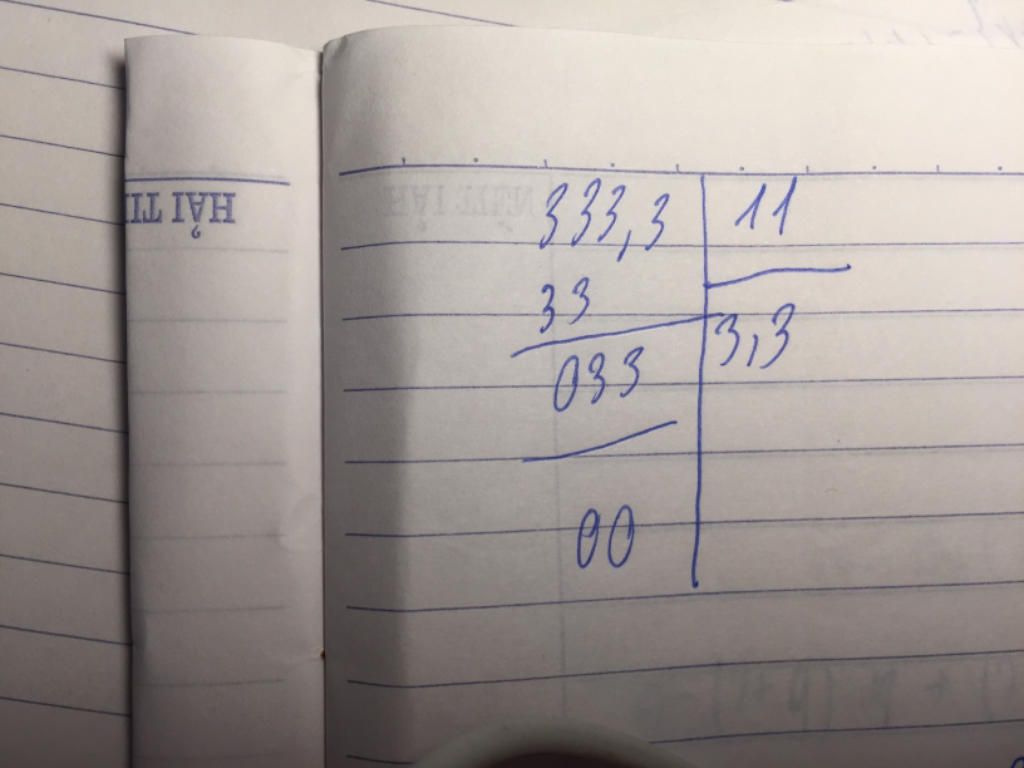 333,3 11
33 3,3
033
00
HẢI TI